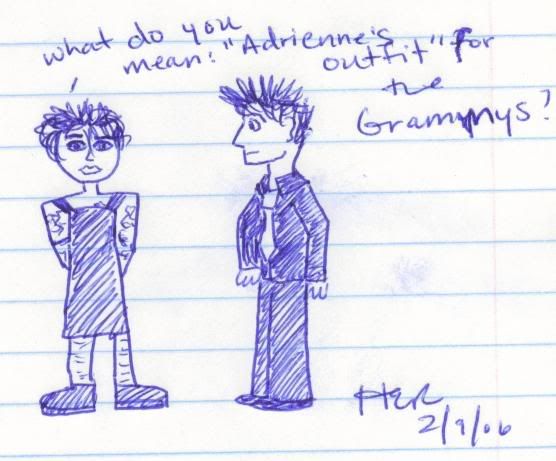 what do you
mean: "Adrienne's
outfit" for
the
Grammys?
HER
2/9/06